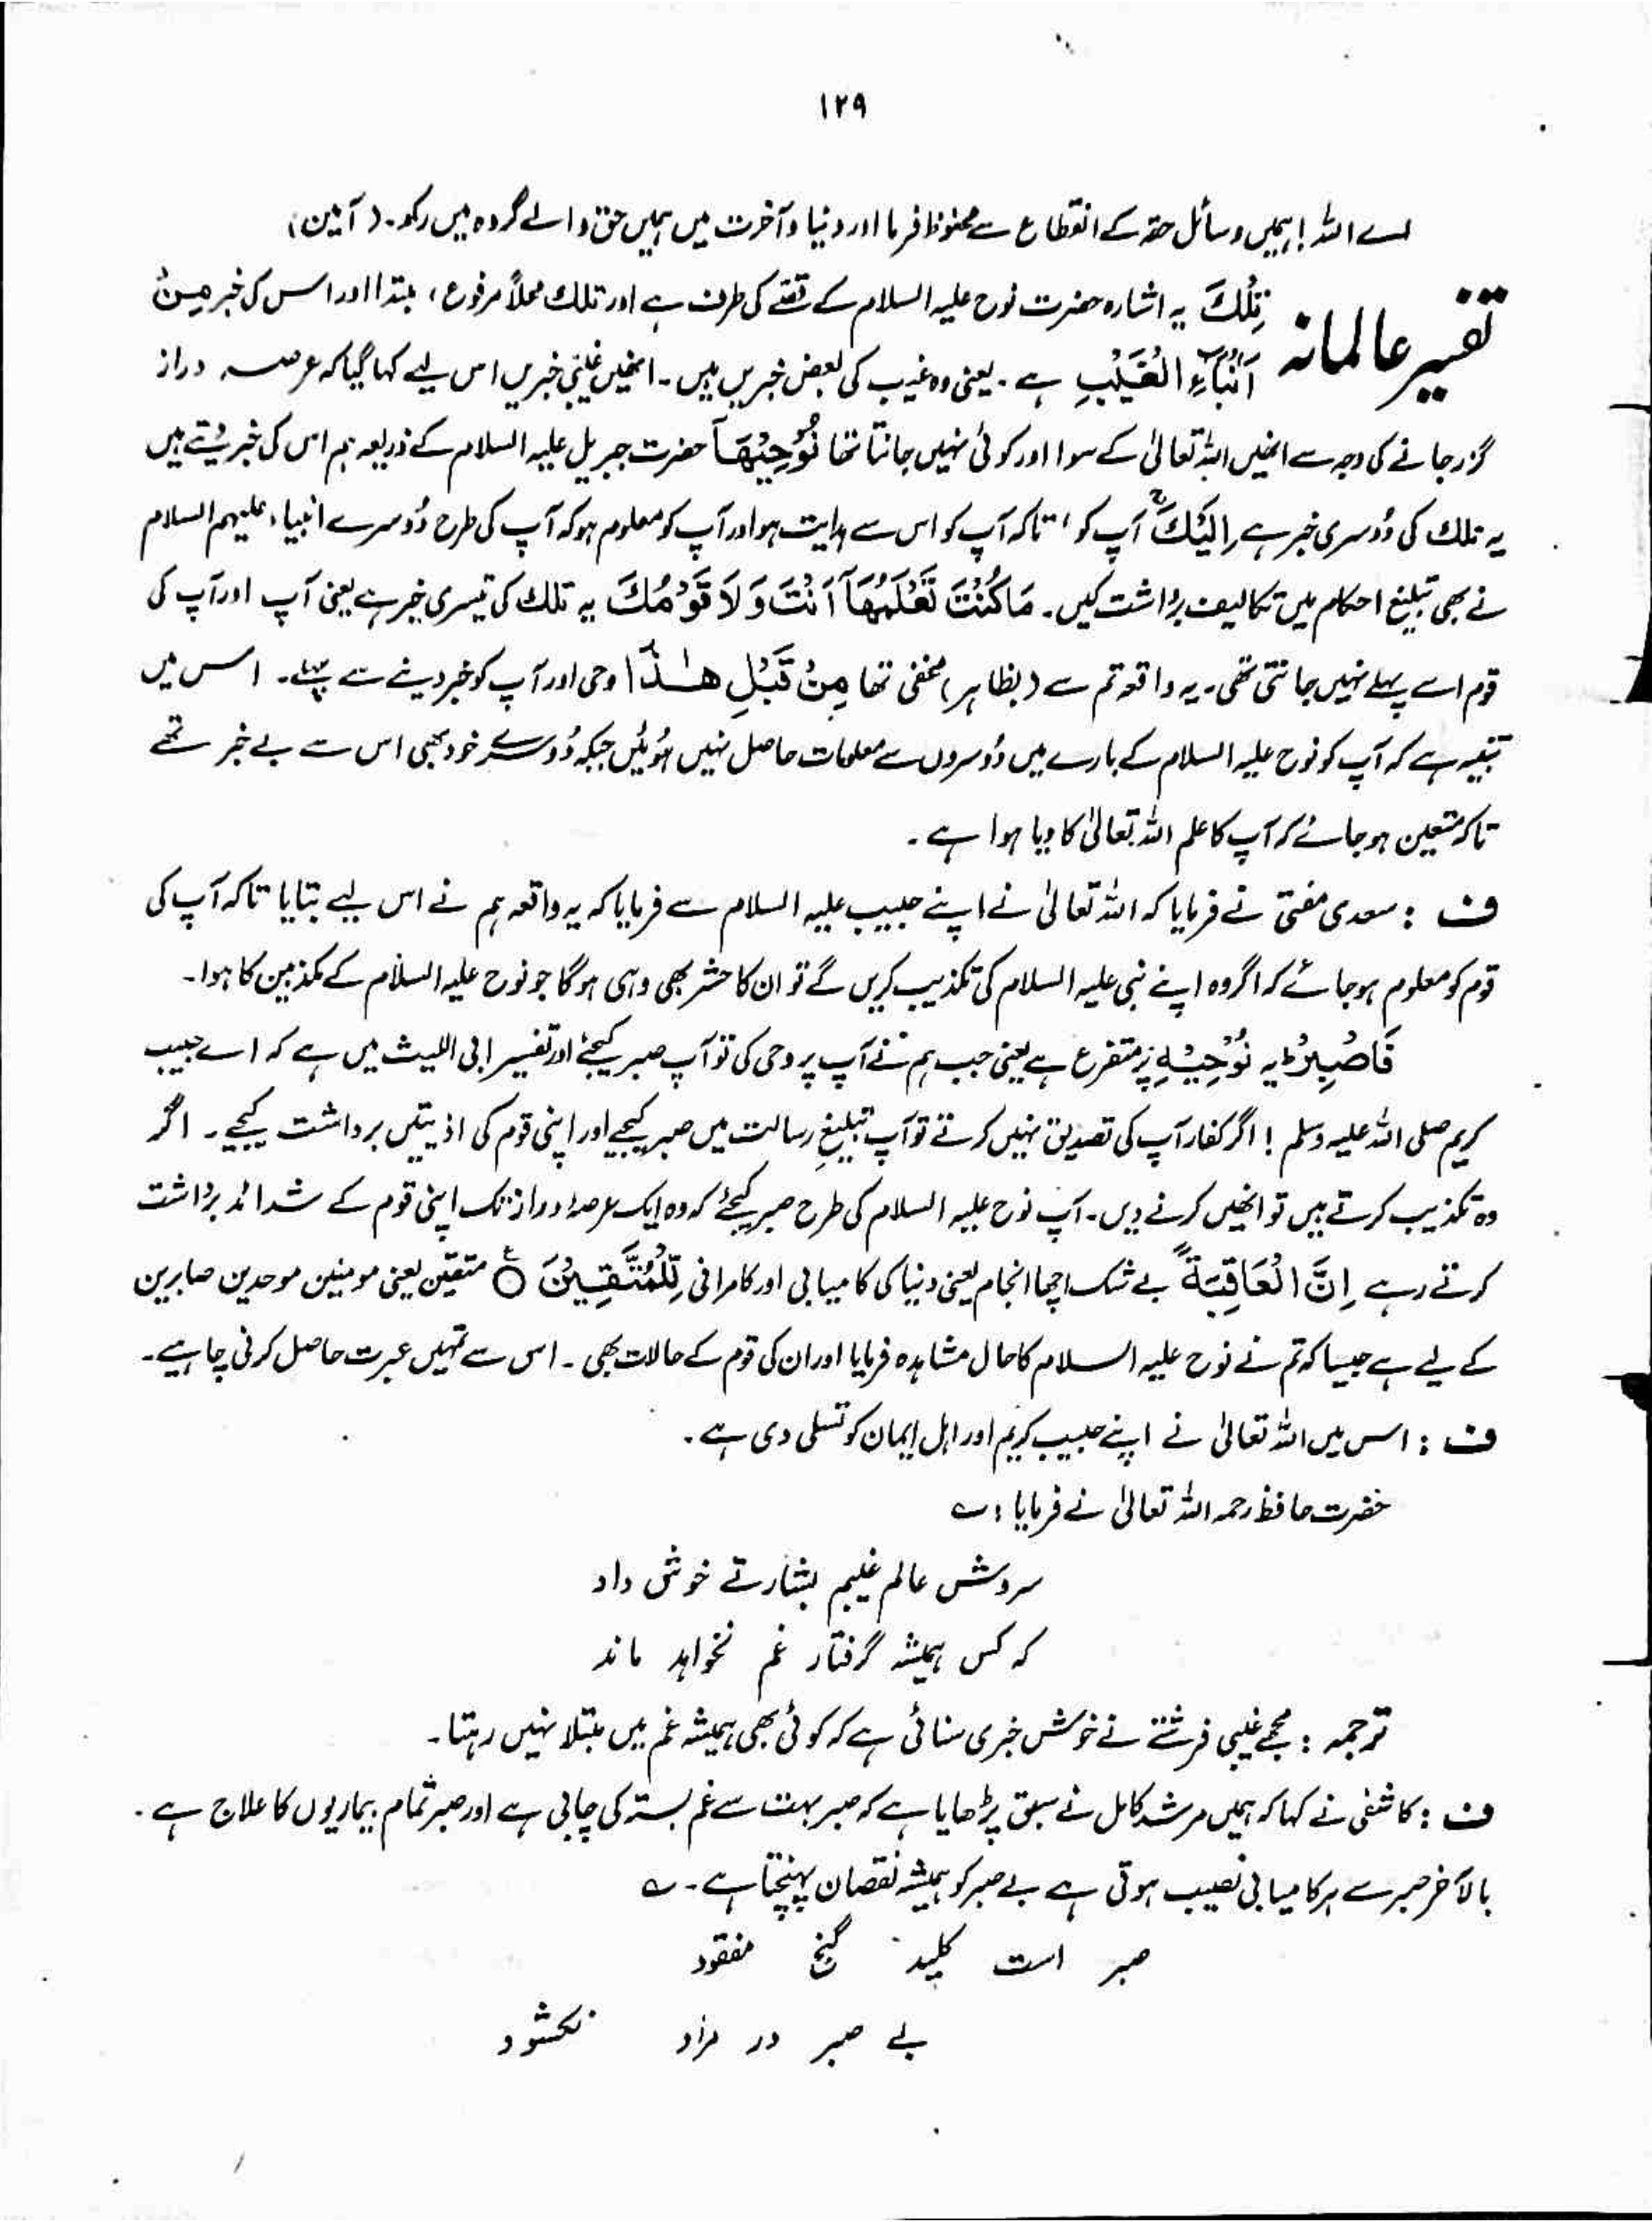 ۱۲۹
اے اللہ! ہمیں وسائل حقہ کے انقطاع سے محفوظ فرما اور دنیا و آخرت میں ہمیں حق والے گروہ میں رکھ۔ (آمین)
تفسیر عالمانہ
تِلْكَ یہ اشارہ حضرت نوح علیہ السلام کے قصّے کی طرف ہے اور تلك محلاً مرفوع، مبتدا اور اس کی خبر مِنْ
اَنْۢبَآءِ الْغَيْبِ ہے۔ یعنی وہ غیب کی بعض خبریں ہیں۔ انھیں غیبی خبریں اس لیے کہا گیا کہ عرصہ دراز
گزر جانے کی وجہ سے انھیں اللہ تعالیٰ کے سوا اور کوئی نہیں جانتا تھا نُوْحِيْهَآ حضرت جبریل علیہ السلام کے ذریعہ ہم اس کی خبر دیتے ہیں
یہ تلك کی دُوسری خبر ہے اِلَيْكَ ۚ آپ کو، تاکہ آپ کو اس سے ہدایت ہو اور آپ کو معلوم ہو کہ آپ کی طرح دُوسرے انبیاء علیہم السلام
نے بھی تبلیغ احکام میں تکالیف برداشت کیں۔ مَا كُنْتَ تَعْلَمُهَآ اَنْتَ وَ لَا قَوْمُكَ یہ تلك کی تیسری خبر ہے یعنی آپ اور آپ کی
قوم اسے پہلے نہیں جانتی تھی۔ یہ واقعہ تم سے (بظاہر) مخفی تھا مِنْ قَبْلِ هٰذَا ۛ وحی اور آپ کو خبر دینے سے پہلے۔ اس میں
تنبیہ ہے کہ آپ کو نوح علیہ السلام کے بارے میں دُوسروں سے معلومات حاصل نہیں ہُوئیں جبکہ دُوسرے خود بھی اس سے بے خبر تھے
تاکہ متعین ہو جائے کہ آپ کا علم اللہ تعالیٰ کا دیا ہوا ہے۔
ف : سعدی مفتی نے فرمایا کہ اللہ تعالیٰ نے اپنے حبیب علیہ السلام سے فرمایا کہ یہ واقعہ ہم نے اس لیے بتایا تاکہ آپ کی
قوم کو معلوم ہو جائے کہ اگر وہ اپنے نبی علیہ السلام کی تکذیب کریں گے تو ان کا حشر بھی وہی ہوگا جو نوح علیہ السلام کے مکذبین کا ہوا۔
فَاصْبِرْ ؕ یہ نُوْحِيْهِ پر متفرع ہے یعنی جب ہم نے آپ پر وحی کی تو آپ صبر کیجئے اور تفسیر ابی اللیث میں ہے کہ اے حبیب
کریم صلی اللہ علیہ وسلم ! اگر کفار آپ کی تصدیق نہیں کرتے تو آپ تبلیغِ رسالت میں صبر کیجیے اور اپنی قوم کی اذیتیں برداشت کیجیے۔ اگر
وہ تکذیب کرتے ہیں تو انھیں کرنے دیں۔ آپ نوح علیہ السلام کی طرح صبر کیجئے کہ وہ ایک عرصہ دراز تک اپنی قوم کے شدائد برداشت
کرتے رہے اِنَّ الْعَاقِبَةَ بے شک اچھا انجام یعنی دنیا کی کامیابی اور کامرانی لِلْمُتَّقِيْنَ ○ متقین یعنی مومنین موحدین صابرین
کے لیے ہے جیسا کہ تم نے نوح علیہ السلام کا حال مشاہدہ فرمایا اور ان کی قوم کے حالات بھی۔ اس سے تمہیں عبرت حاصل کرنی چاہیے۔
ف : اس میں اللہ تعالیٰ نے اپنے حبیب کریم اور اہل ایمان کو تسلی دی ہے۔
حضرت حافظ رحمہ اللہ تعالیٰ نے فرمایا : ؎
سروش عالم غیبم بشارتے خوش داد
کہ کس ہمیشہ گرفتار غم نخواہد ماند
ترجمہ : مجھے غیبی فرشتے نے خوش خبری سنائی ہے کہ کوئی بھی ہمیشہ غم میں مبتلا نہیں رہتا۔
ف : کاشفی نے کہا کہ ہمیں مرشد کامل نے سبق پڑھایا ہے کہ صبر بہت سے غم بستہ کی چابی ہے اور صبر تمام بیماریوں کا علاج ہے۔
بالآخر صبر سے ہر کامیابی نصیب ہوتی ہے بے صبر کو ہمیشہ نقصان پہنچتا ہے۔ ؎
صبر است کلید گنج مفقود
بے صبر در مراد نکشود